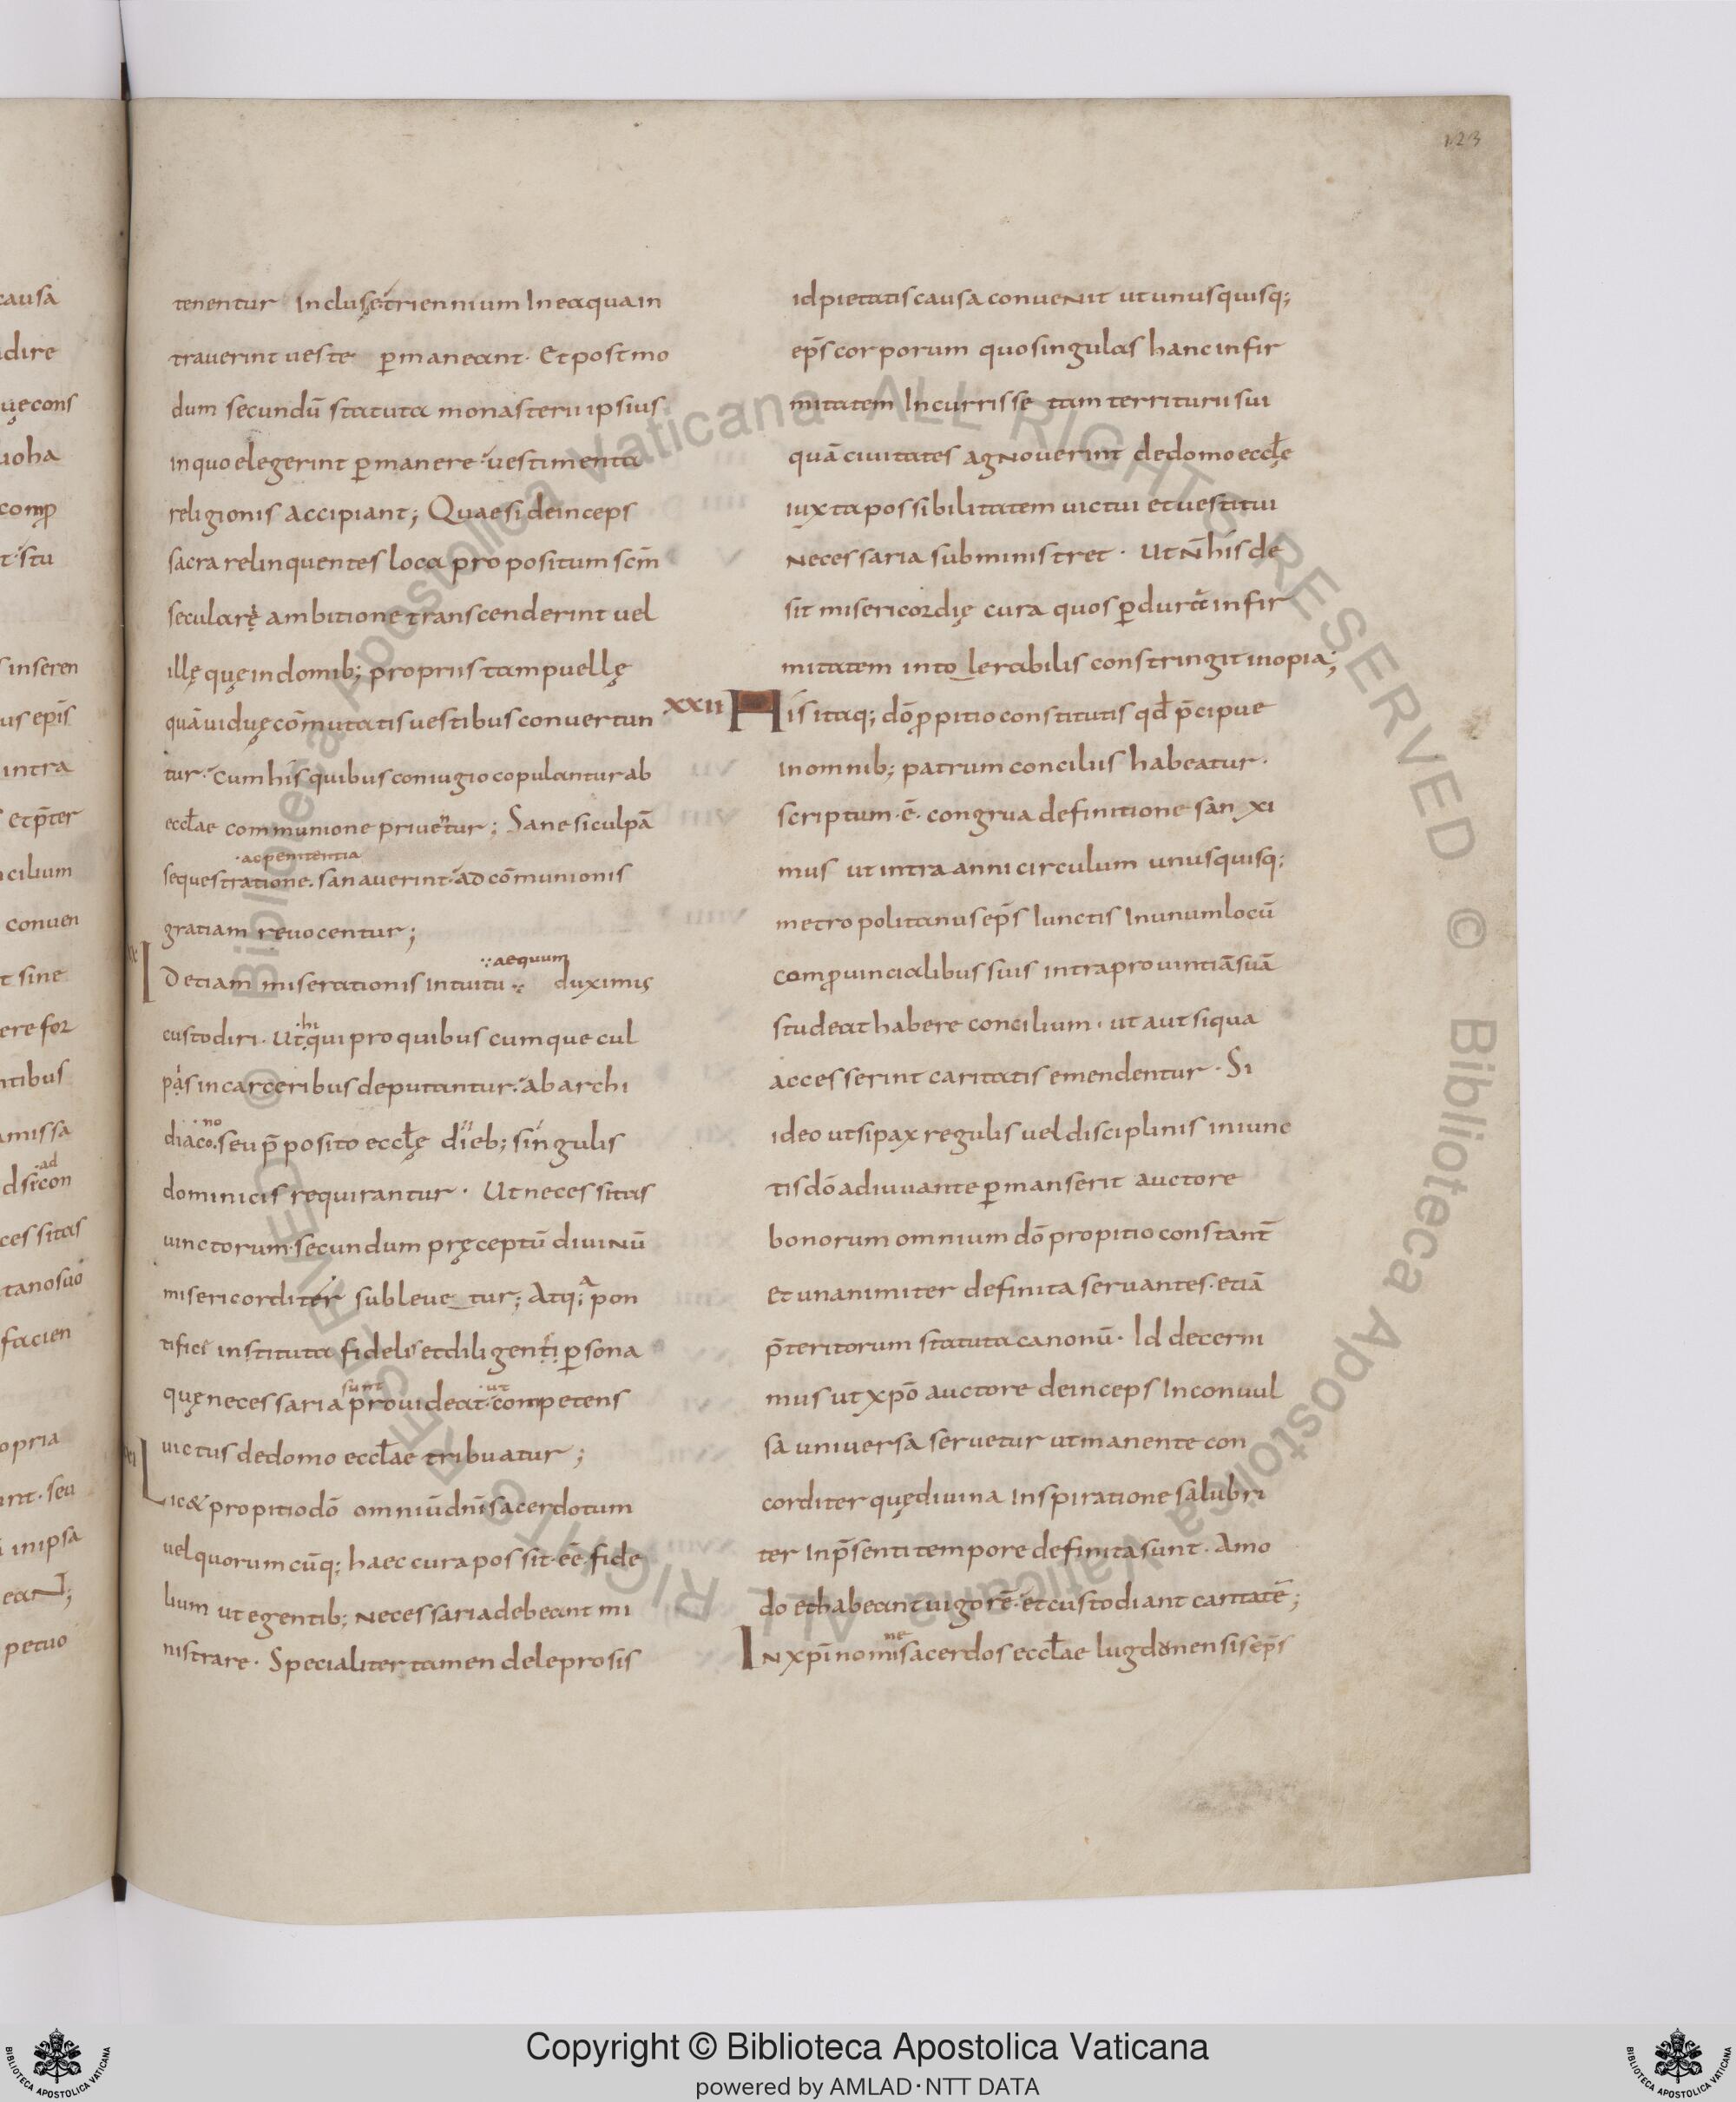 123
causa
dire
uęcons
uoha
comp̄
t stu
s inseren
us epis̄
intra
s et p̄ter
ncilium
conuen
t sine
ere for
ntibus
amissa
ad
d sicon
ces sitas
tanosuo
facien
opria
unt · seu
inipsa
eaN;
petuo
tenentur Inclusę triennium In eaqua in
trauerint ueste p̄maneant · Et post mo
dum secundū statuta monasterii ipsius
in quo elegerint p̄manere uestimenta
religionis accipiant; Quae si deinceps
sacra relinquentes loca propositum scm̄
secularę ambitione transcenderint uel
illę quę in domib; propriis tam puellę
quā uiduę cōmutatis uestibus conuertun
tur · Cum his quibus coniugio copulantur ab
eccłae communione priuentur; Sane si culpā
· ac penitentia
sequestratione · sanauerint ad cōmunionis
gratiam reuocentur;
aequum
Id etiam miserationis intuitu duximus
hi
custodiri · Ut qui pro quibus cumque cul
pis in carceribus deputantur · ab archi
no
diaco · seu p̄posito eccłę dieb; singulis
dominicis requirantur · Ut necessitas
uinctorum · secundum pręceptū diuinū
misericorditer subleuetur; Atq; a pon
tifice instituta fideli et diligenti p̄sona
sunt ut
quę necessaria prouideat · competens
uictus de domo eccłae tribuatur;
Lic& propitio dō omniū dn̄i sacerdotum
uel quorumcūq; haec cura possit · ēē · fide
lium ut egentib; necessaria debeant mi
nistrare · Specialiter tamen de leprosis
id pietatis causa conuenit ut unusquisq;
ep̄s corporum quo singulas hanc infir
mitatem Incurrisse tam territurii sui
quā ciuitates agnouerint de domo eccłę
iuxta possibilitatem uictui et uestitui
necessaria subministret · Ut N̄ his de
sit misericordię cura quos p̄ durā infir
mitatem intolerabilis constringit inopia;
XXII His itaq; dō p̄pitio constitutis qd̄ p̄cipue
in omnib; patrum conciliis habeatur ·
scriptum · ē · congrua definitione san xi
mus ut intra anni circulum unusquisq;
metropolitanus ep̄s Iunctis In unum locū
comp̄uincialibus suis intra prouintiā suā
studeat habere concilium · ut aut si qua
accesserint caritatis emendentur · Si
ideo ut si pax regulis uel disciplinis iniunc
tis dō adiuuante p̄manserit auctore
bonorum omnium dō propitio constant̄
et unanimiter definita seruantes · etiā
p̄teritorum statuta canonū · Id decerni
mus ut xpō auctore deinceps Inconuul
sa uniuersa seruetur ut manente con
corditer quę diuina Inspiratione salubri
ter In p̄senti tempore definita sunt · Amo
do et habeant uigorē et custodiant caritatē;
ne
In xpī nomi sacerdos eccłae lugdonensis ep̄s
© Biblioteca Apostolica Vaticana ALL RIGHTS RESERVED
© Biblioteca Apostolica Vaticana ALL RIGHTS RESERVED
Copyright © Biblioteca Apostolica Vaticana
powered by AMLAD·NTT DATA
BIBLIOTECA APOSTOLICA VATICANA
BIBLIOTECA APOSTOLICA VATICANA